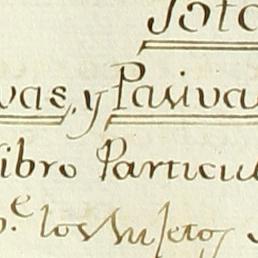 Tota
vas, y Pasiva
ibro Particu
e los sujetos